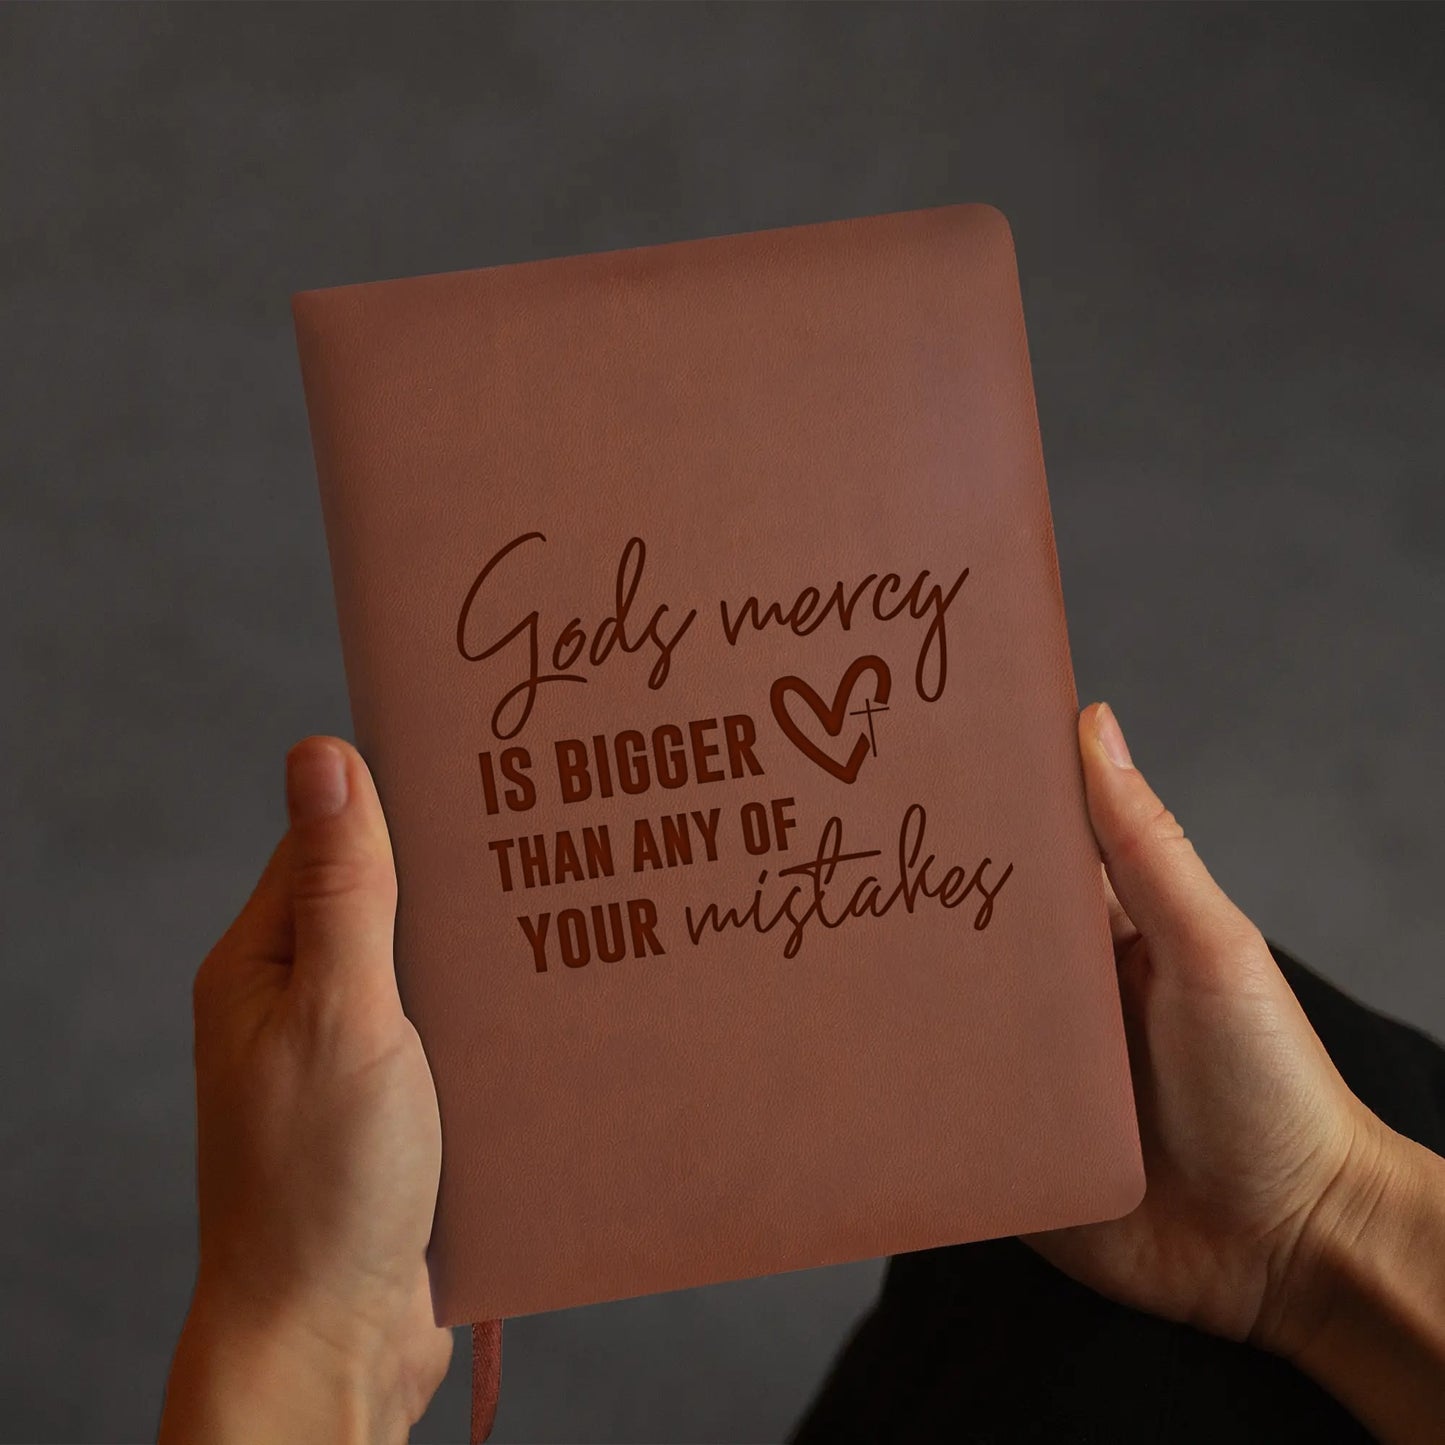 Gods mercy
IS BIGGER
THAN ANY OF
YOUR mistakes